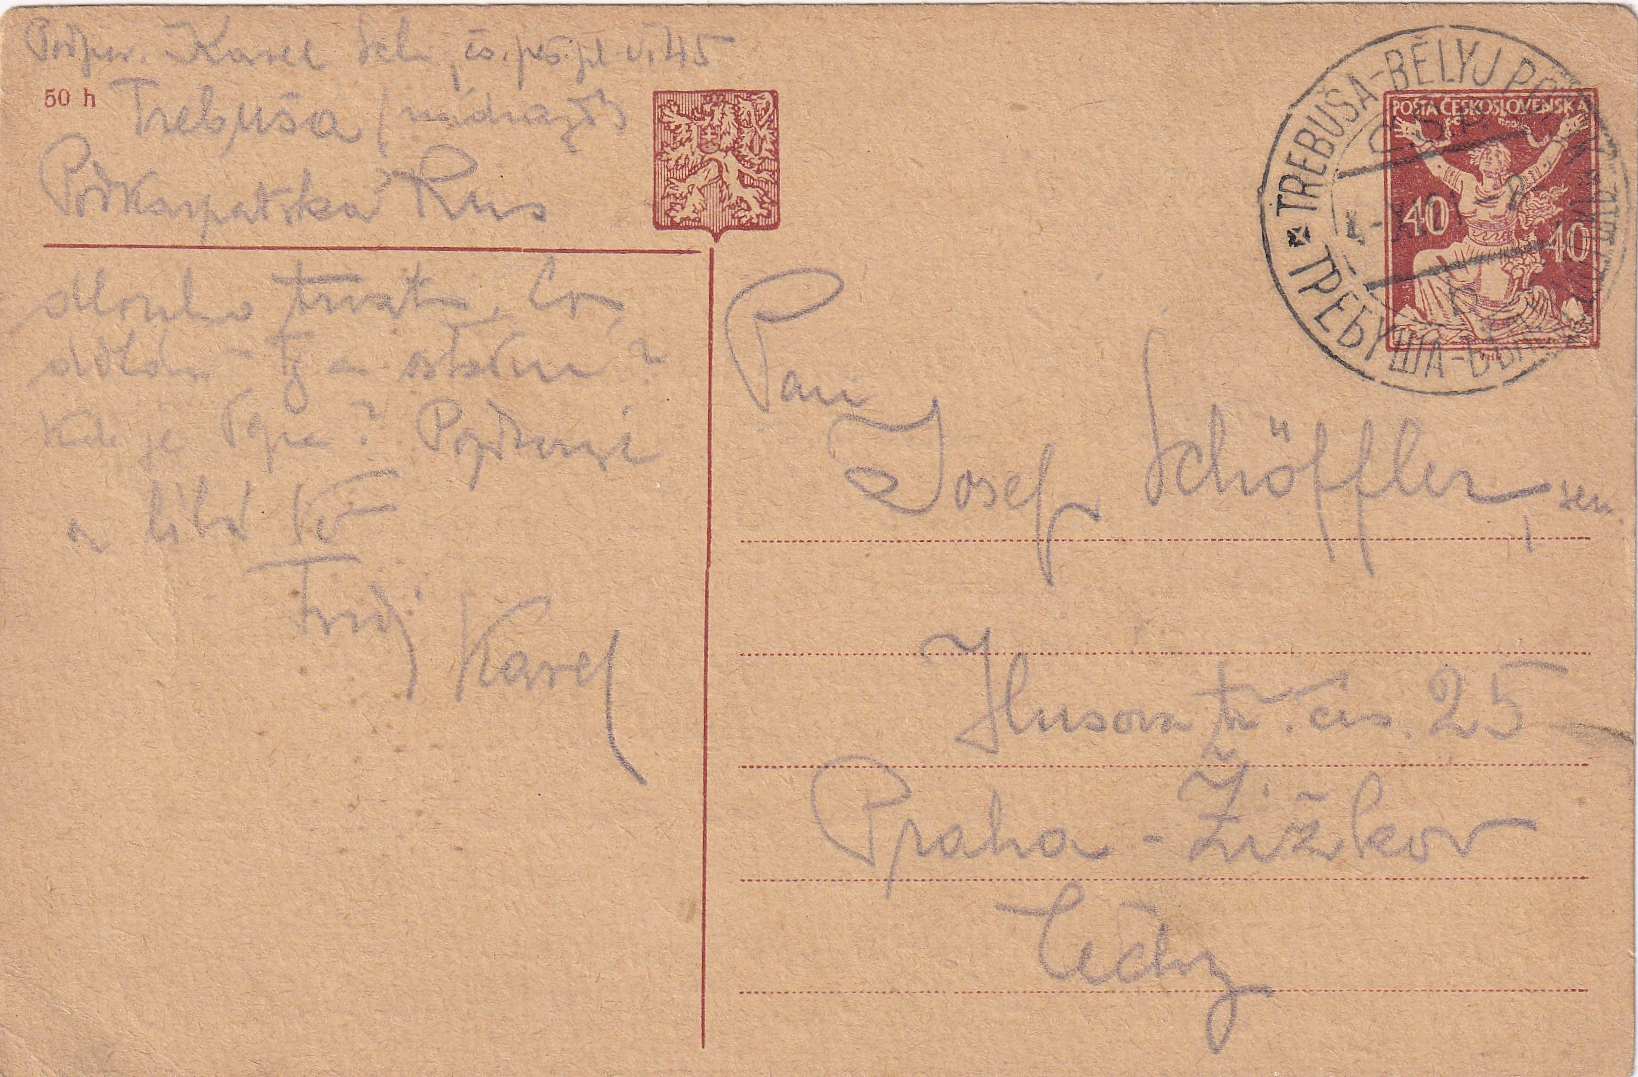 Podpor. Karel Sch., čs. pěš. pl. č. 45
50 h
Trebuša (nádraží)
Podkarpatská Rus
dlouho trvati. Co
děláš Ty a ostatní?
Kde je Pepa? Pozdravuje
a líbá Vás
Tvůj Karel
POŠTA ČESKOSLOVENSKÁ
40 40
TREBUŠA-BĚLYJ POTOK
ТРЕБУША-БѢЛ
Pan
Josef Schöffler, sen.
Husova tř. čís. 25
Praha - Žižkov
Čechy